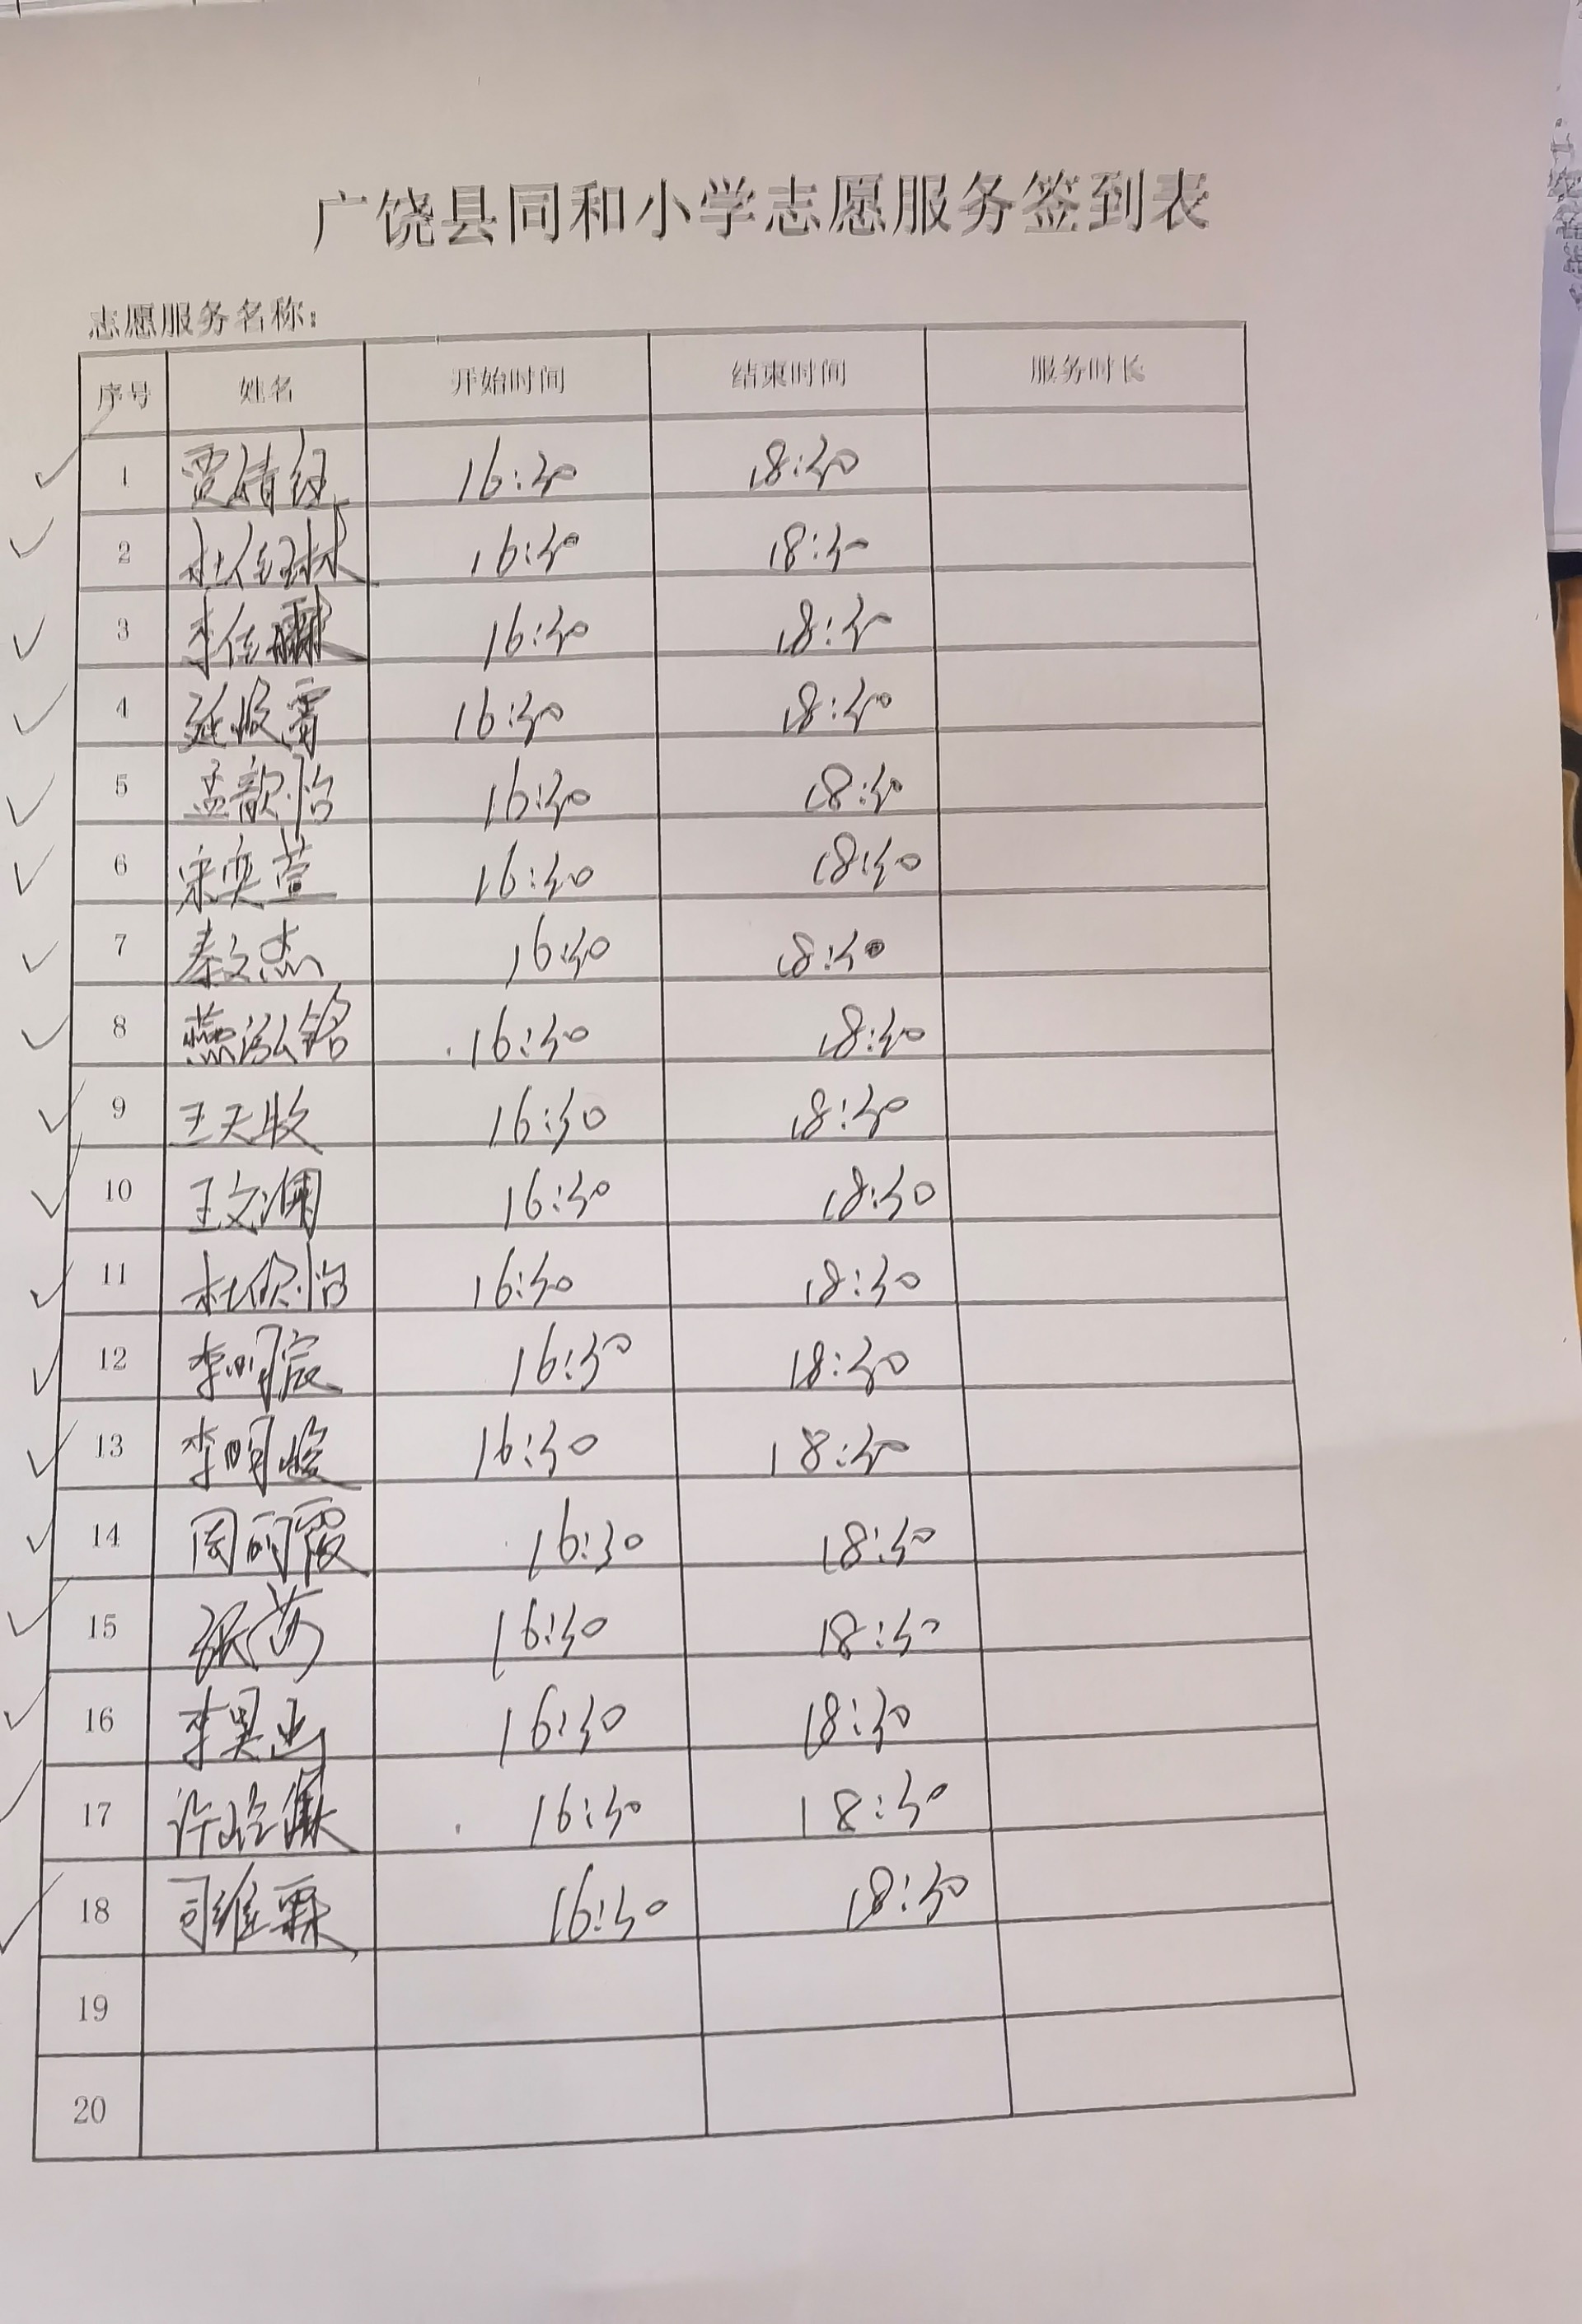 广饶县同和小学志愿服务签到表
志愿服务名称：
序号 姓名 开始时间 结束时间 服务时长
1 贾婧钰 16:30 18:30
2 杜钰林 16:30 18:30
3 李佳霖 16:30 18:30
4 16:30 18:30
5 孟歆怡 16:30 18:30
6 宋奕萱 16:30 18:30
7 秦文杰 16:30 18:30
8 燕泓铭 16:30 18:30
9 王天牧 16:30 18:30
10 王文澜 16:30 18:30
11 杜佩怡 16:30 18:30
12 李明宸 16:30 18:30
13 李明峻 16:30 18:30
14 周丽霞 16:30 18:30
15 张芳 16:30 18:30
16 李昊 16:30 18:30
17 许 16:30 18:30
18 司维霖 16:30 18:30
19
20